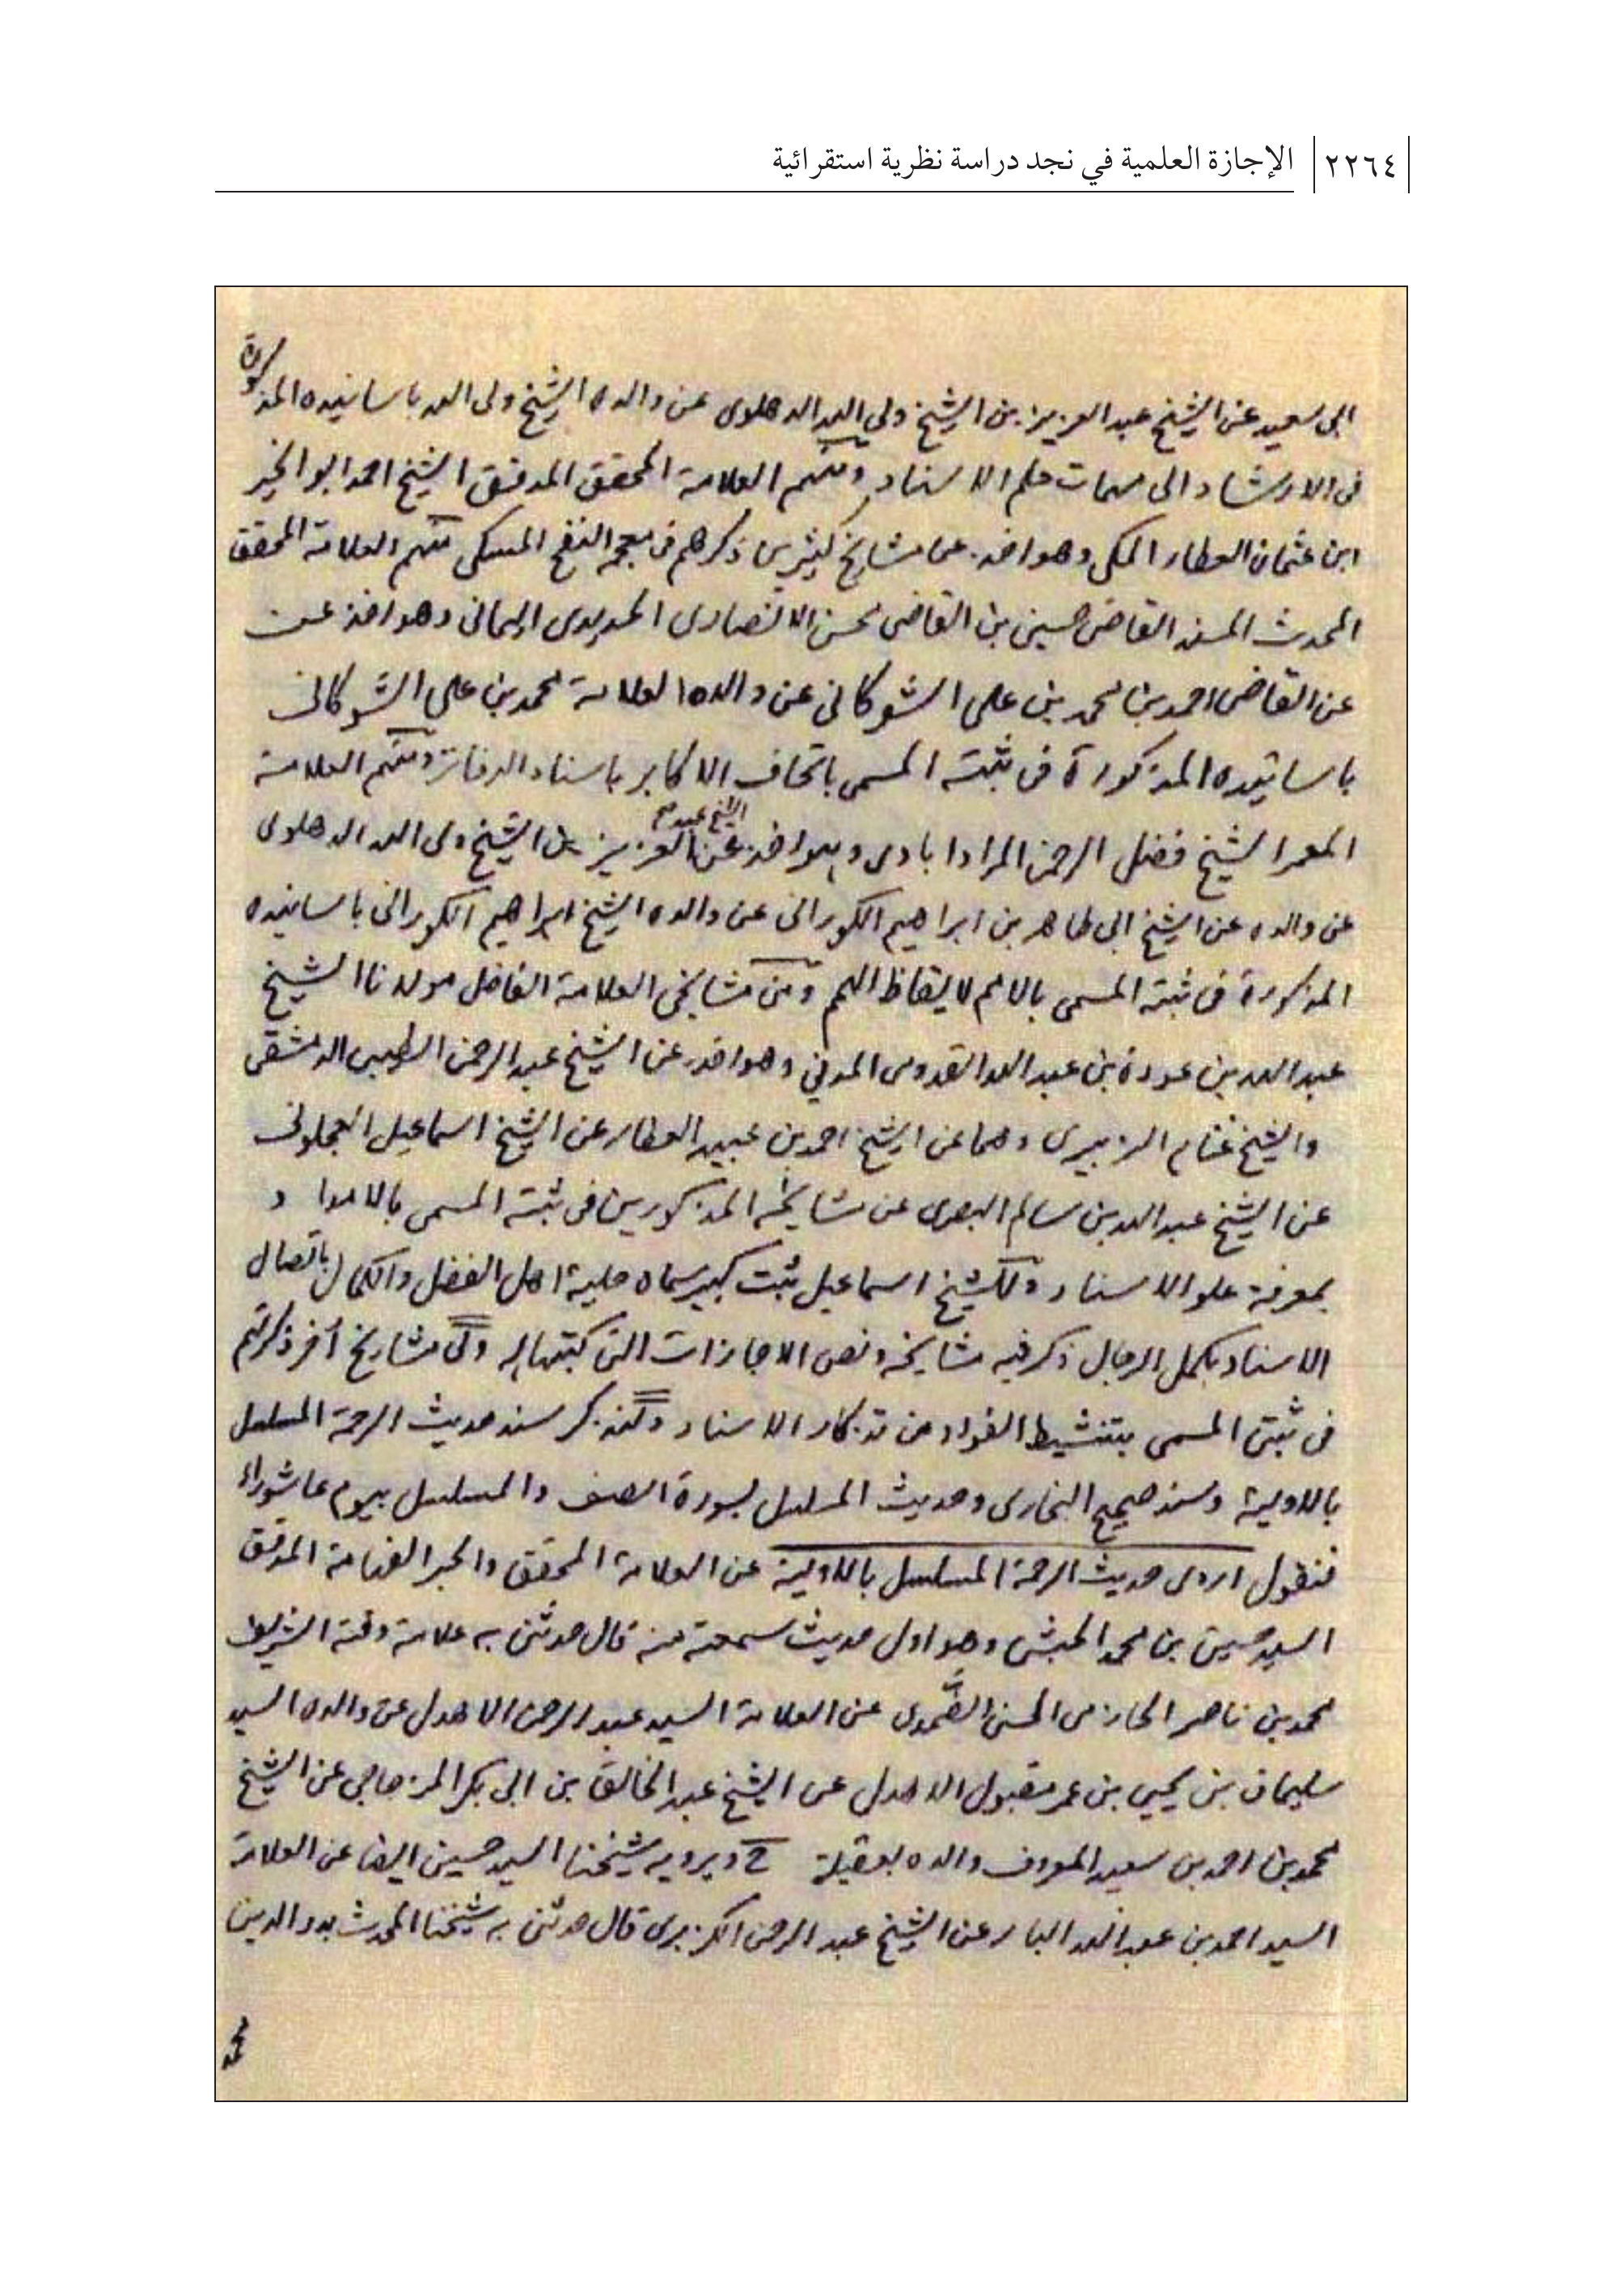 ٢٢٦٤ الإجازة العلمية في نجد دراسة نظرية استقرائية
ابى سعيد عن الشيخ عبد العزيز بن الشيخ ولي الله الدهلوى عن والده الشيخ ولى الله باسانيده المذكورة
فى الارشاد الى مهمات علم الاسناد ومنهم العلامة المحقق المدقق الشيخ احمد ابو الخير
ابن عثمان العطار المكى وهو اخذ عن مشايخ كثيرين ذكرهم فى معجمه النفح المسكى منهم العلامة المحقق
المحدث المسند القاضى حسين بن القاضى محسن الانصارى الحديدى اليمانى وهو اخذ عن
عن القاضى احمد بن محمد بن على الشوكانى عن والده العلامة محمد بن على الشوكانى
باسانيده المذكورة فى ثبته المسمى باتحاف الاكابر باسناد الدفاتر ومنهم العلامة
المعمر الشيخ فضل الرحمن المرادابادى وهو اخذ عن الشيخ عبد العزيز بن الشيخ ولى الله الدهلوى
عن والده عن الشيخ ابى طاهر بن ابراهيم الكورانى عن والده الشيخ ابراهيم الكورانى باسانيده
المذكورة فى ثبته المسمى بالامم لايقاظ الهمم ومن مشايخى العلامة الفاضل مولانا الشيخ
عبد الله بن عودة بن عبد الله القدومى المدني وهو اخذ عن الشيخ عبد الرحمن الطيبى الدمشقى
والشيخ غنام الزبيرى وهما عن الشيخ احمد بن عبيد العطار عن الشيخ اسماعيل العجلونى
عن الشيخ عبد الله بن سالم البصرى عن مشايخه المذكورين فى ثبته المسمى بالامداد
بمعرفة علو الاسناد وللشيخ اسماعيل ثبت كبير سماه حلية اهل الفضل والكمال باتصال
الاسناد بكمل الرجال ذكر فيه مشايخه ونص الاجازات التى كتبوها له ولى مشايخ أخر ذكرتهم
فى ثبتى المسمى بتنشيط الفؤاد من تذكار الاسناد ولنذكر سند حديث الرحمة المسلسل
بالاولية وسند صحيح البخارى وحديث المسلسل بسورة الصف والمسلسل بيوم عاشوراء
فنقول اروى حديث الرحمة المسلسل بالاولية عن العلامة المحقق والحبر الفهامة المدقق
السيد حسين بن محمد الحبشى وهو اول حديث سمعته منه قال حدثنى به علامة وقته الشريف
محمد بن ناصر الحازمى الحسنى الضَّمدى عن العلامة السيد عبد الرحمن الاهدل عن والده السيد
سليمان بن يحيى بن عمر مقبول الاهدل عن الشيخ عبد الخالق بن ابى بكر المزجاجى عن الشيخ
محمد بن احمد بن سعيد المعروف والده بعقيلة ح ويرويه شيخنا السيد حسين ايضا عن العلامة
السيد احمد بن عبد الله البار عن الشيخ عبد الرحمن الكزبرى قال حدثنى به شيخنا المحدث بدر الدين
محمد